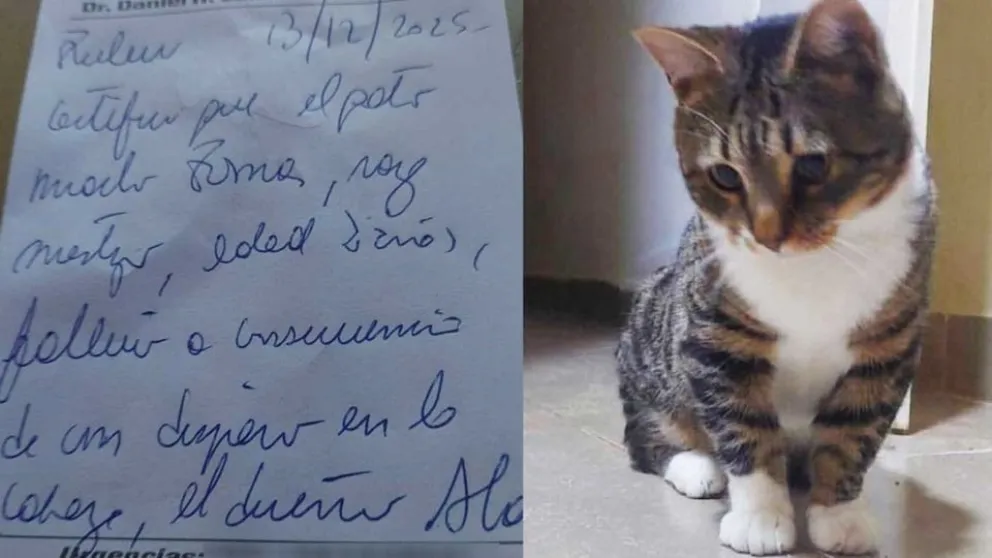 Dr. Daniel
13/12/2025-
Certifico que el gato
macho Tomas, raza
mestizo, edad 2 años,
fallecio a consecuencia
de un disparo en la
cabeza, el dueño
Urgencias: